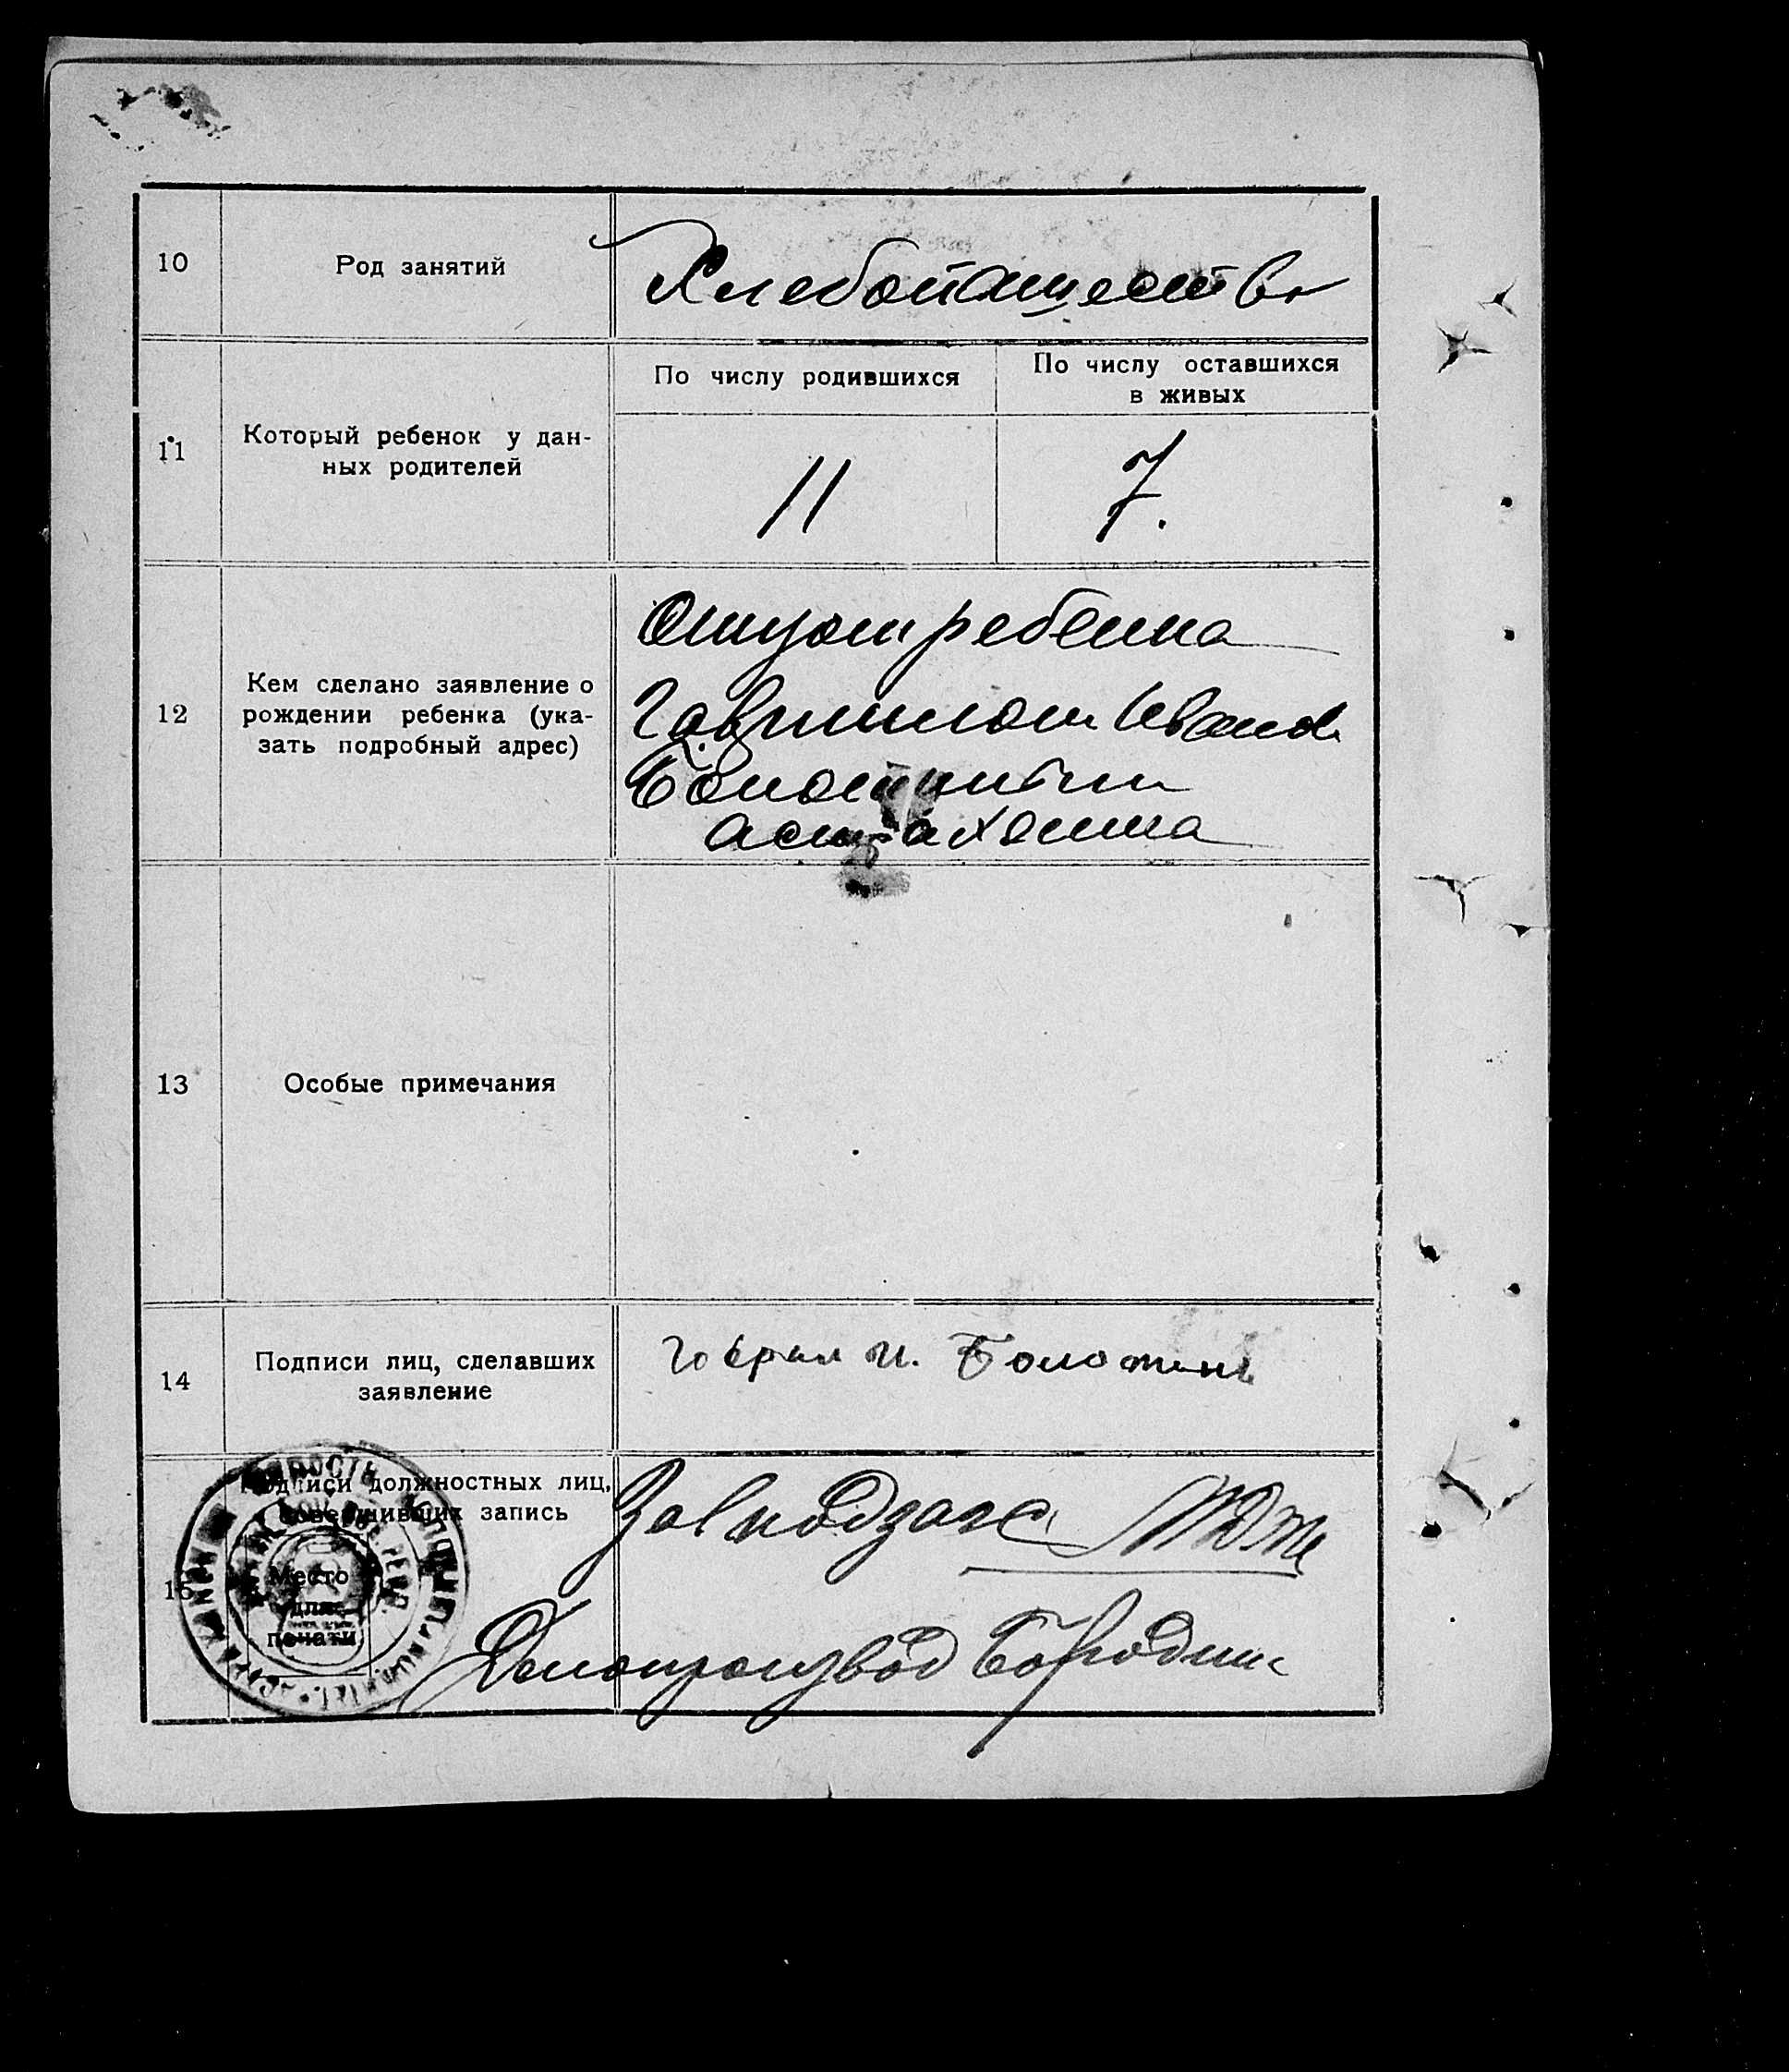 10
Род занятий
Хлебопашество
11
Который ребенок у дан-
ных родителей
По числу родившихся
По числу оставшихся
в живых
11
7.
12
Кем сделано заявление о
рождении ребенка (ука-
зать подробный адрес)
Отцом ребенка
Гавриилом Иванов.
Болотиным
13
Особые примечания
14
Подписи лиц, сделавших
заявление
Гаврил И. Болотинъ
15
Подписи должностных лиц,
совершивших запись
Место
для
печати
Завподзагс
Делопроизвод Бородин